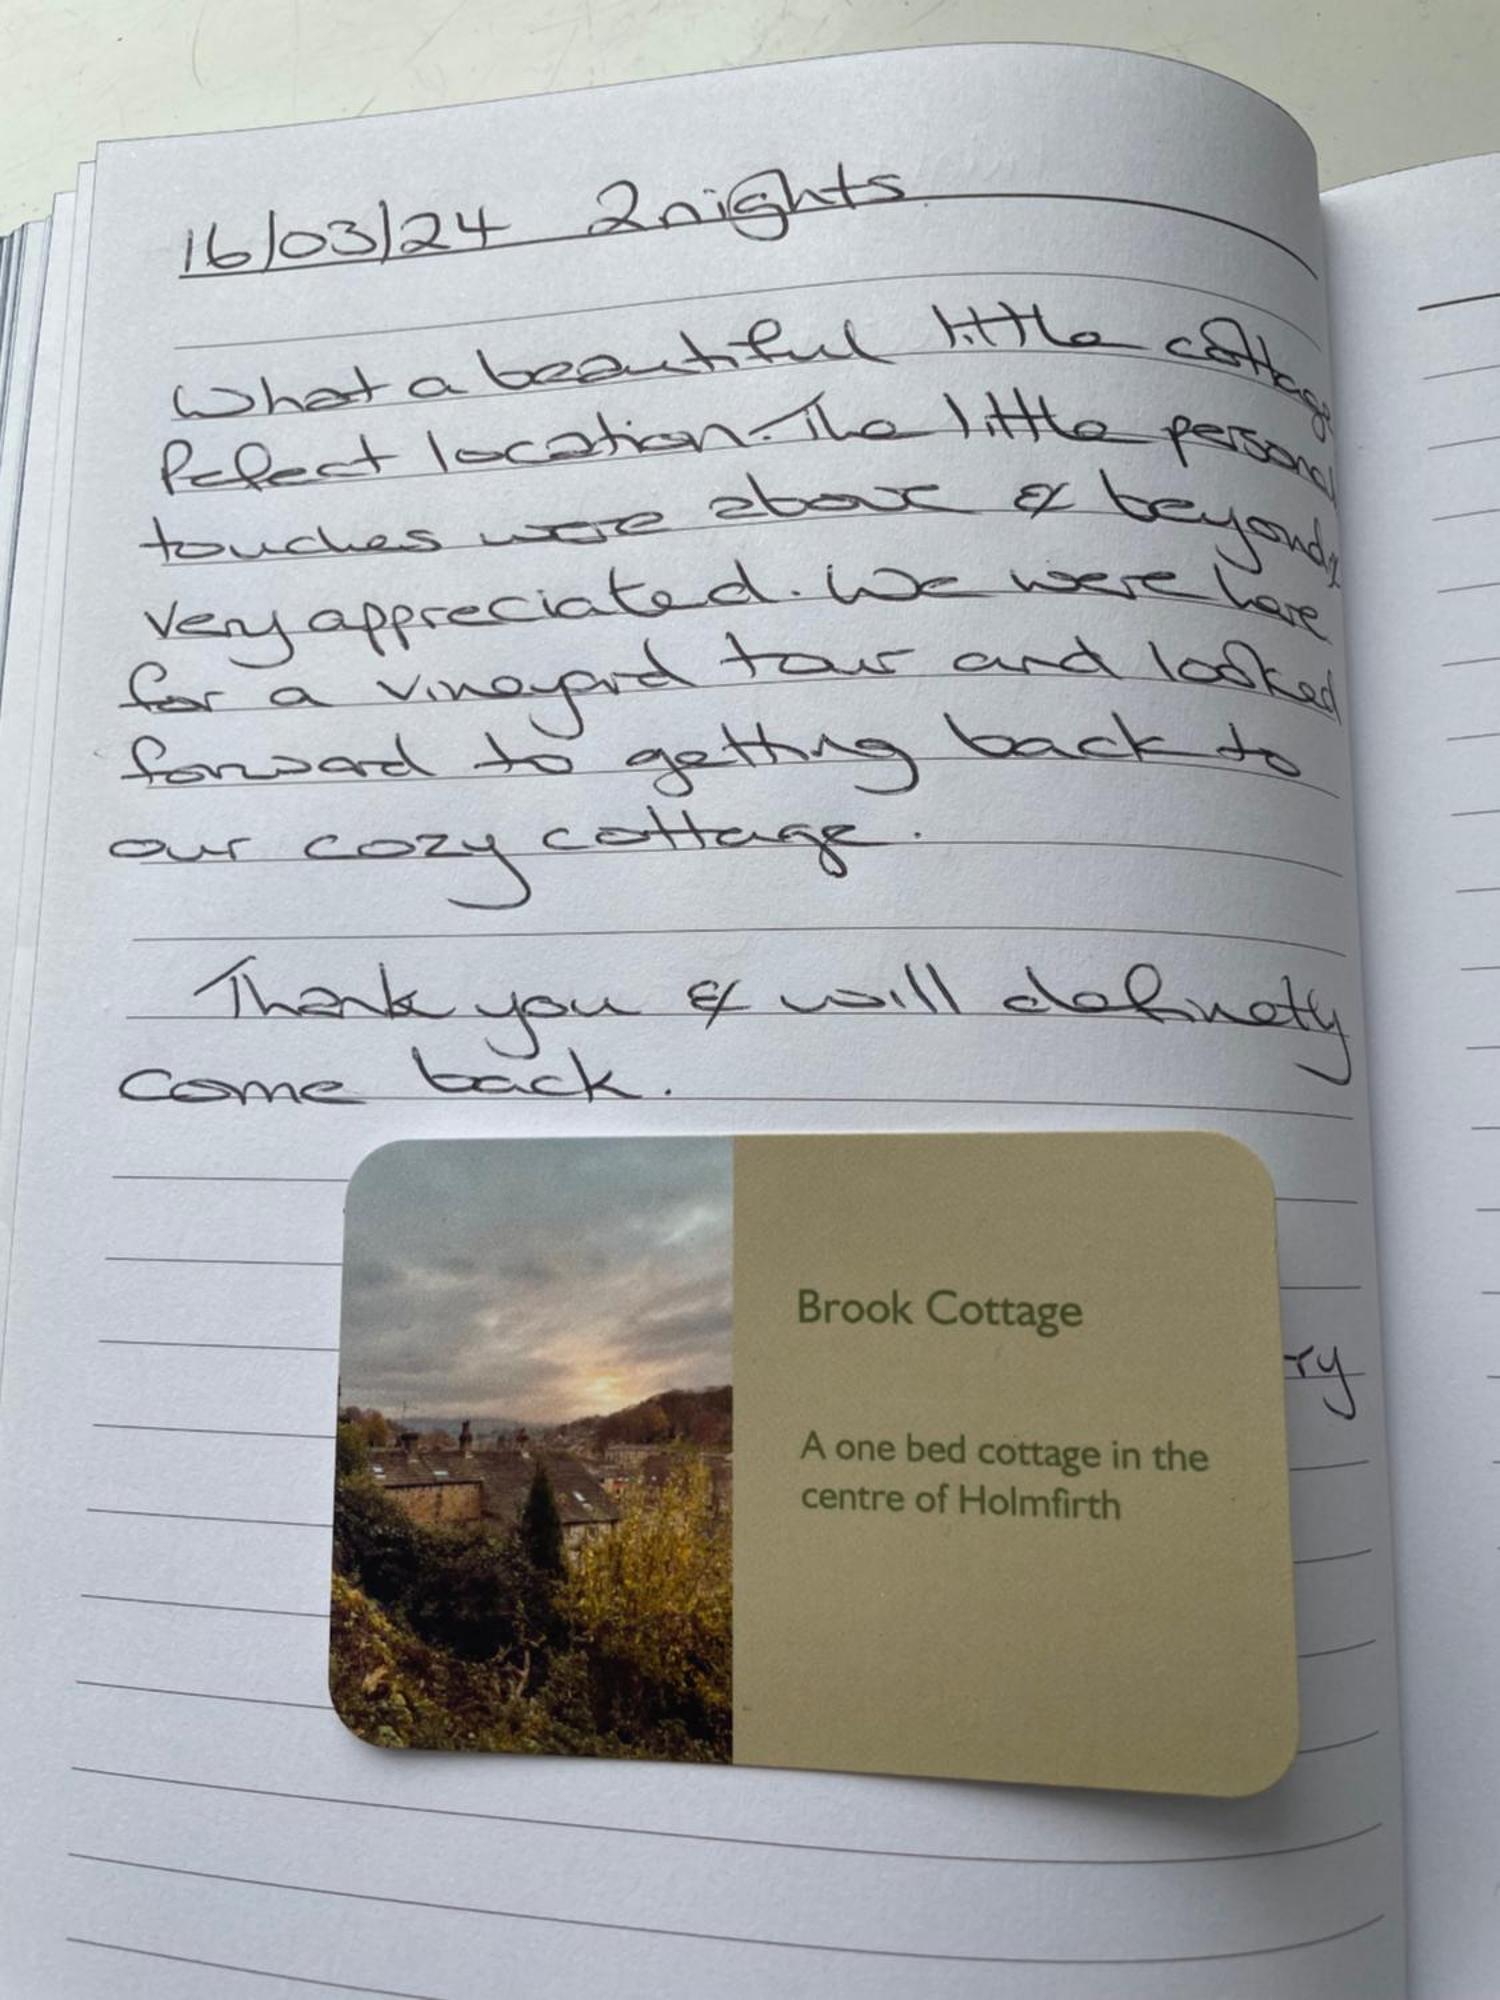 16/03/24 2nights
What a beautiful little cottage
Pefect location. The little personal
touches were above & beyond &
very appreciated. We were here
for a vineyard tour and looked
forward to getting back to
our cozy cottage.
Thank you & will definetly
come back.
Brook Cottage
ry
A one bed cottage in the
centre of Holmfirth